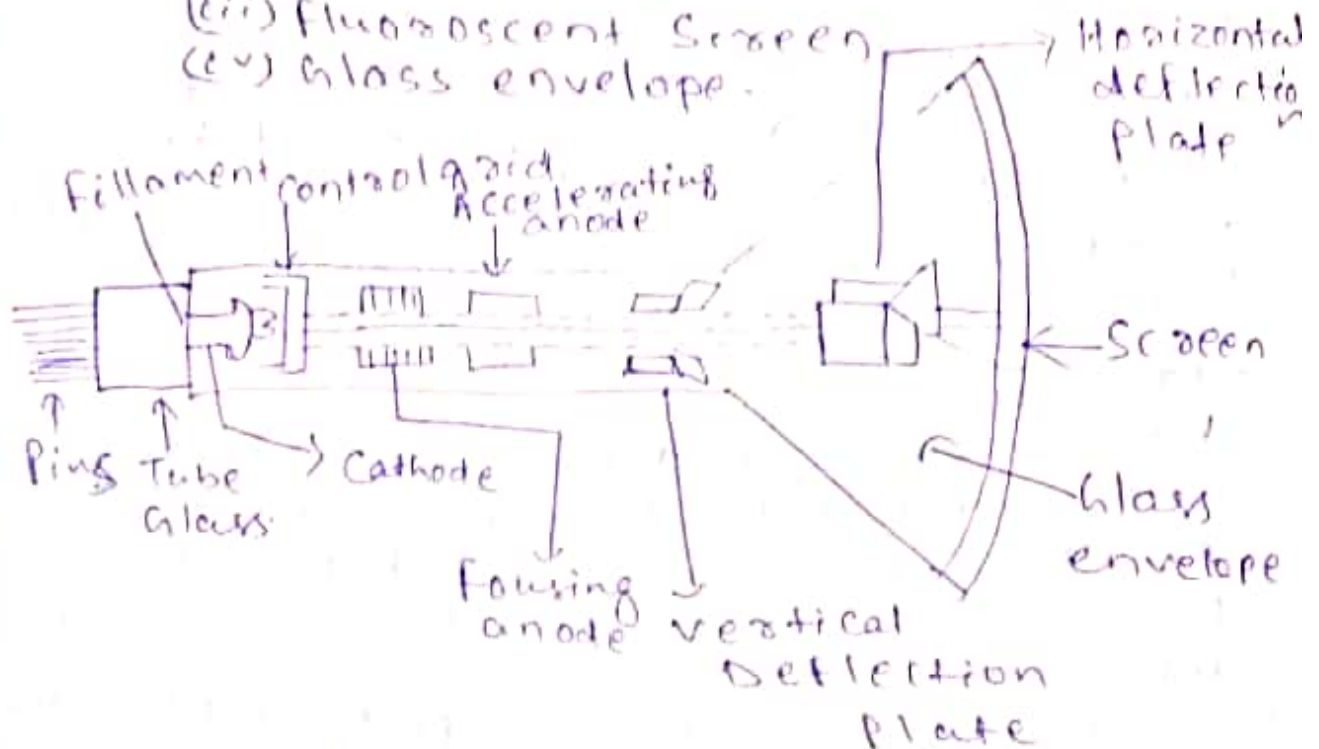 (iii) Fluoroscent Screen
(iv) Glass envelope.
Horizontal
deflection
plate
Fillament
control grid
Accelerating
anode
Screen
Pins
Tube
Glass
Cathode
Glass
envelope
Fousing
anode
vertical
Deflection
plate